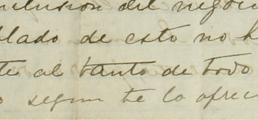 nclusion del negoci
blado de esto no h
te al tanto de todo
o segun te lo ofrec